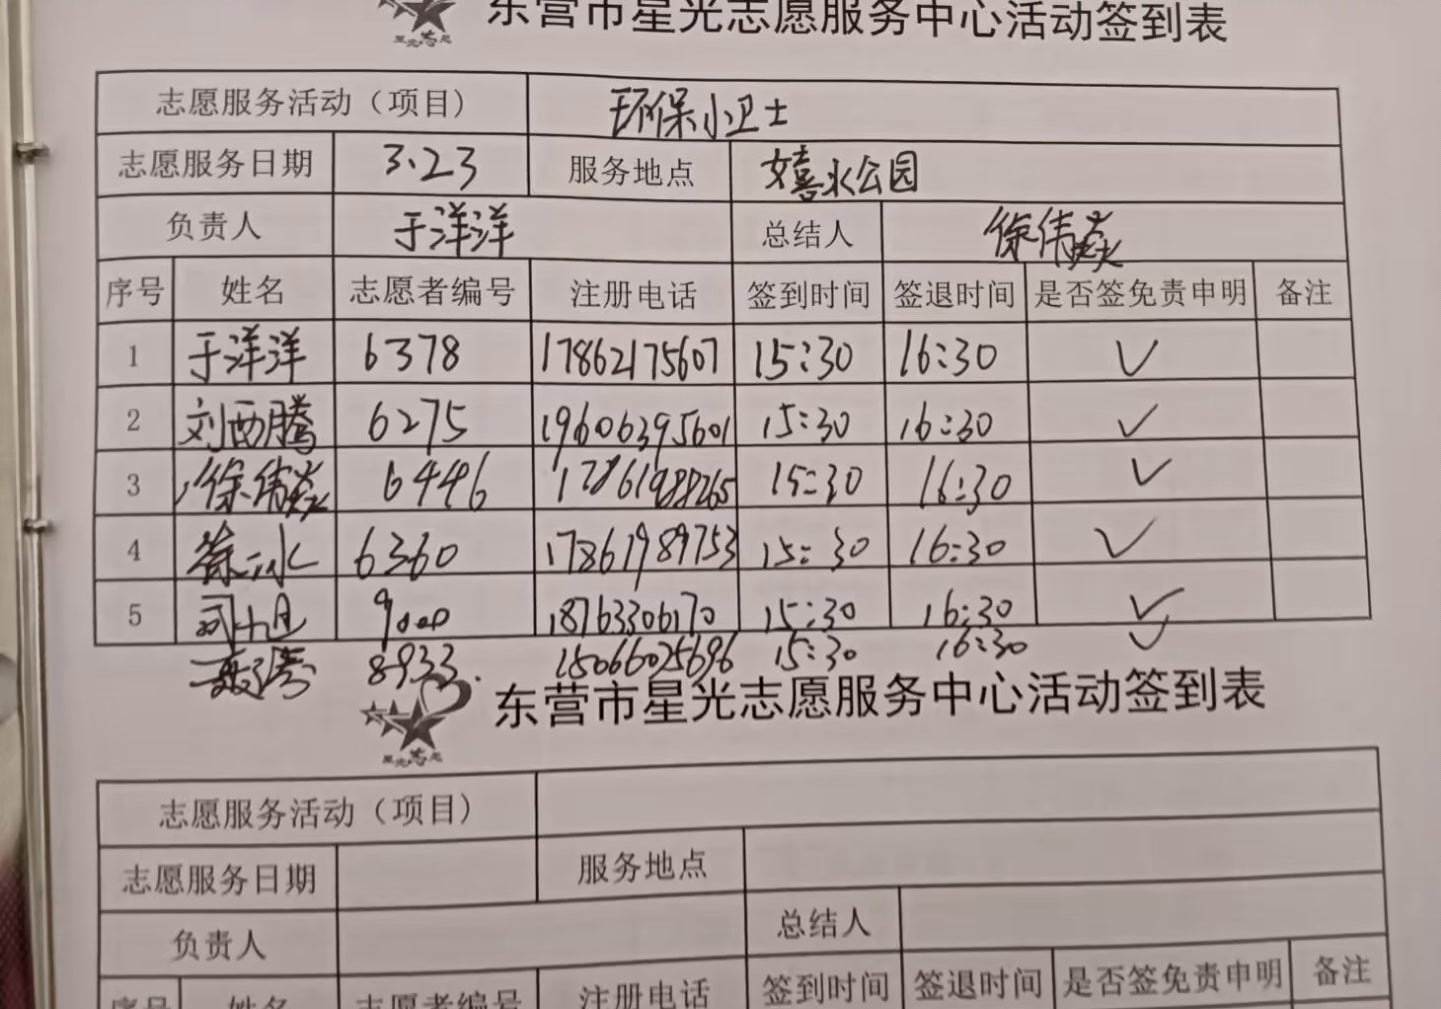 东营市星光志愿服务中心活动签到表
志愿服务活动（项目） 环保小卫士
志愿服务日期 3.23 服务地点 嬉水公园
负责人 于洋洋 总结人 徐伟
序号 姓名 志愿者编号 注册电话 签到时间 签退时间 是否签免责申明 备注
1 于洋洋 6378 17862175607 15:30 16:30 ✓
2 刘西腾 6275 19606395601 15:30 16:30 ✓
3 徐伟 6446 17861988265 15:30 16:30 ✓
4 6360 17861989753 15:30 16:30 ✓
5 9000 18763306170 15:30 16:30 ✓
8933. 15066025696 15:30 16:30 ✓
东营市星光志愿服务中心活动签到表
志愿服务活动（项目）
志愿服务日期 服务地点
负责人 总结人
序号 姓名 志愿者编号 注册电话 签到时间 签退时间 是否签免责申明 备注